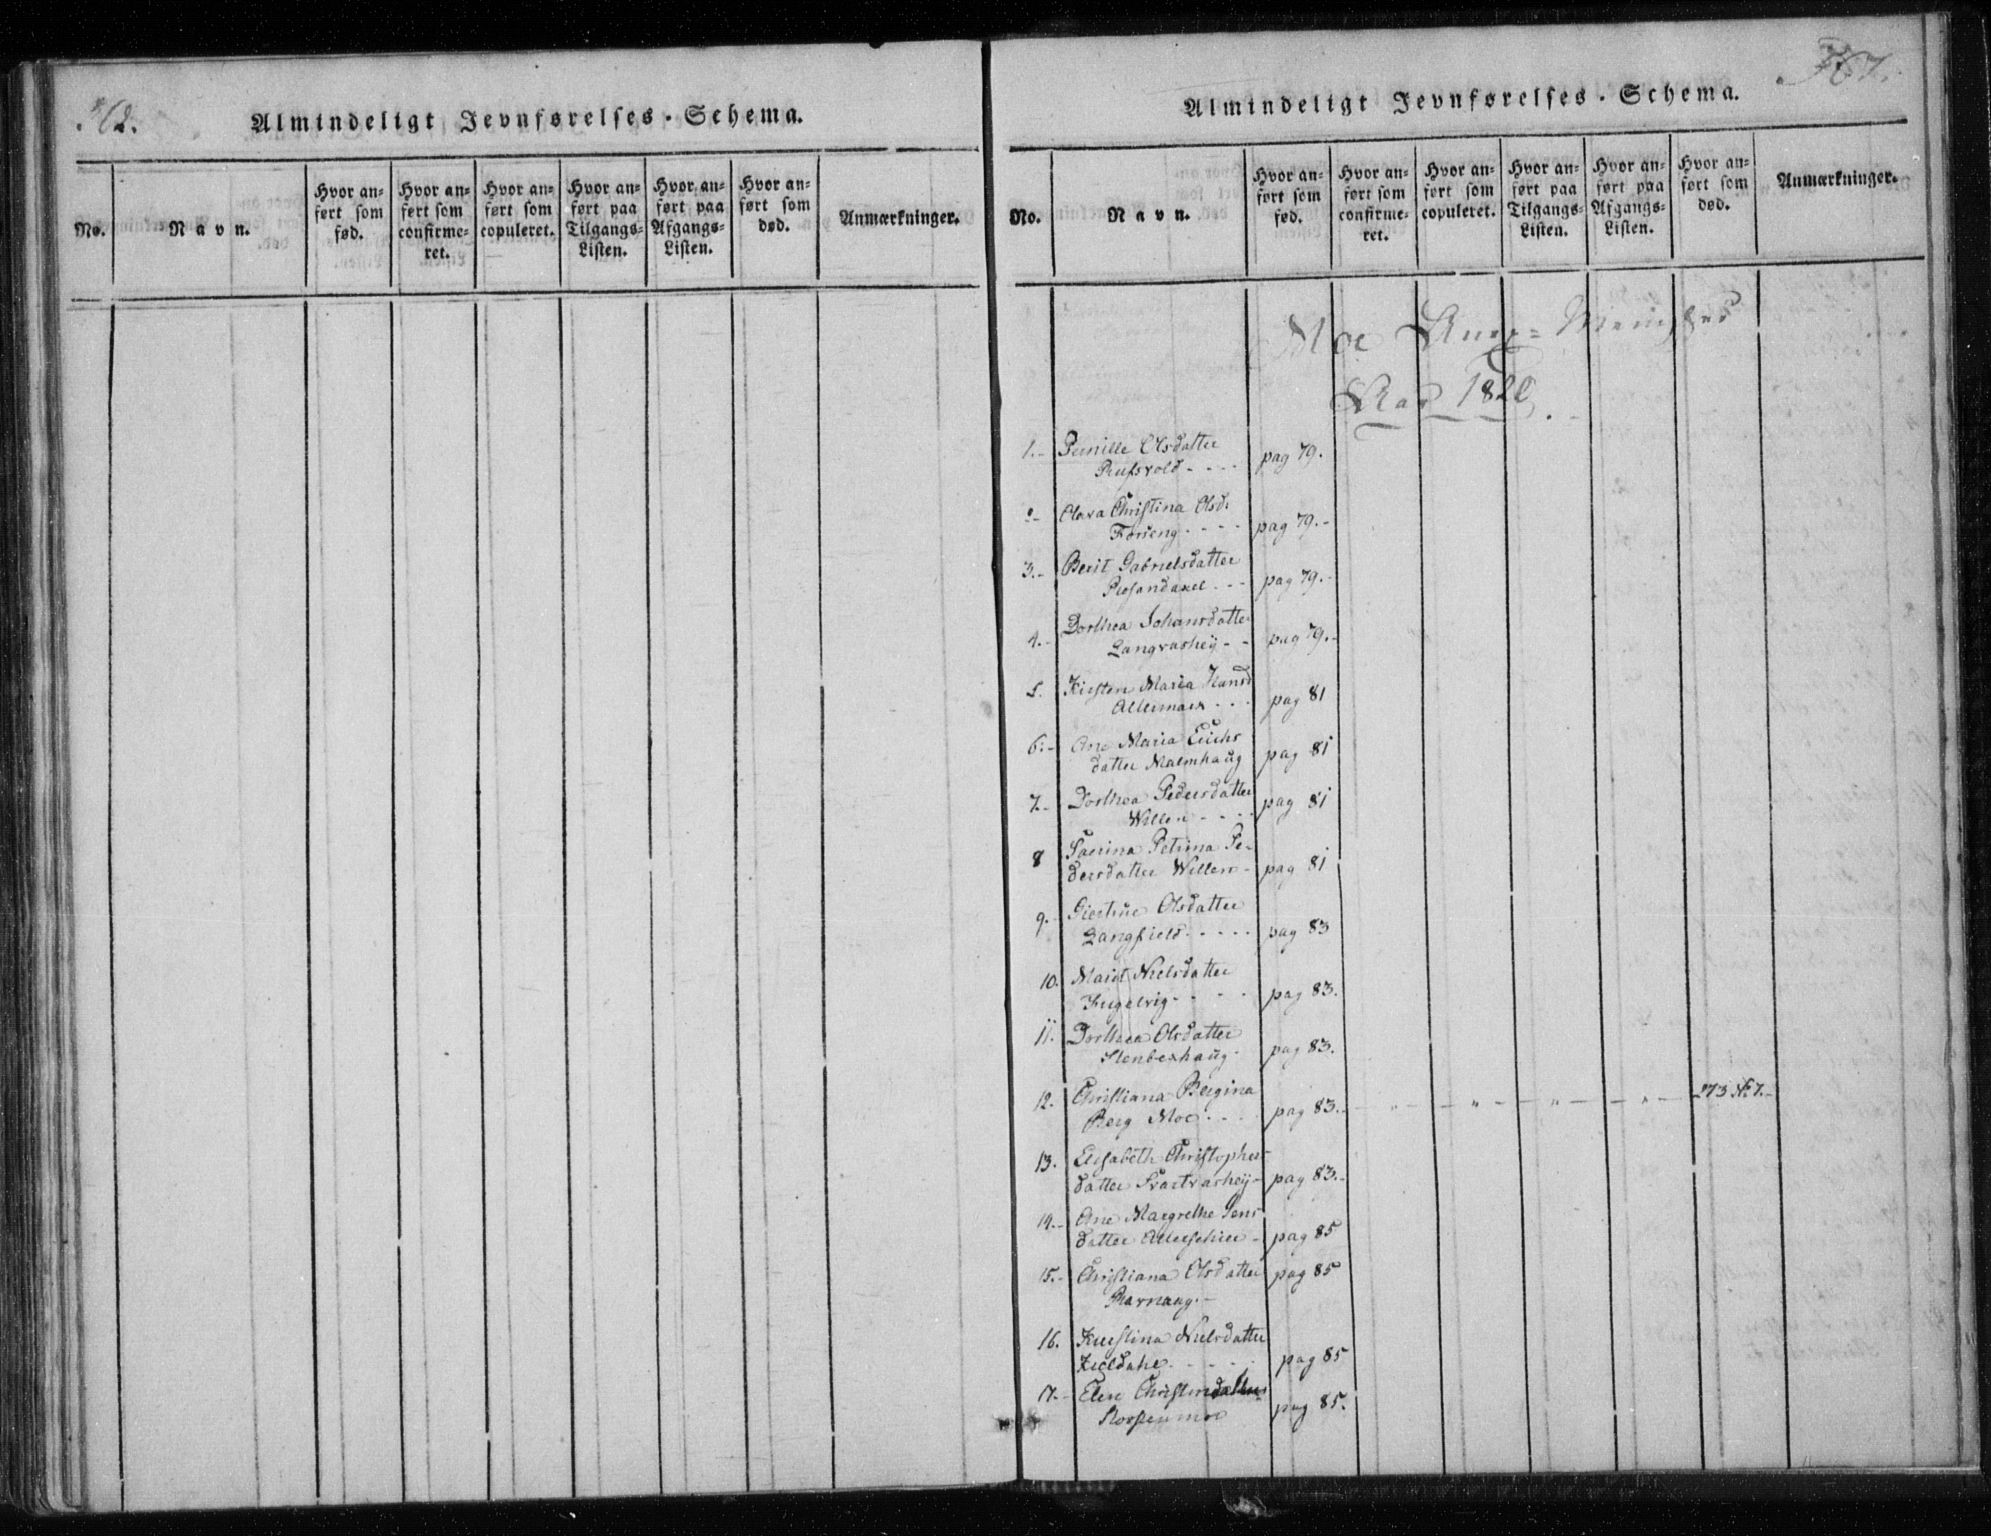 Almindeligt Jevnførelses-Schema.
No.
Navn.
Hvor an-
ført som
fød.
Hvor an-
ført som
confirme-
ret.
Hvor an-
ført som
copuleret.
Hvor an-
ført paa
Tilgangs-
Listen.
Hvor an-
ført paa
Afgangs-
Listen.
Hvor an-
ført som
død.
Anmærkninger.
Almindeligt Jevnførelses-Schema.
No.
Navn.
Hvor an-
ført som
fød.
Hvor an-
ført som
confirme-
ret.
Hvor an-
ført som
copuleret.
Hvor an-
ført paa
Tilgangs-
Listen.
Hvor an-
ført paa
Afgangs-
Listen.
Hvor an-
ført som
død.
Anmærkninger.
Moe Anex-
Aar 1820.
1.- Pernille Olsdatter
pag 79.
Olava Christina Olsd:
Forseng - - - - pag 79.-
3.- Berit Gabrielsdatter
pag 79.-
4.- Dorthea Johansdatter
Langvashey - - pag 79.-
5. Kirsten Maria Hansd
pag 81
6.- Ane Maria Erichs
datter Malmhaug pag 81
7.- Dorthea Pedersdatter
Willen - - - - pag 81
8 Petrina Pe-
dersdatter Willen - pag 81
9. Giertrue Olsdatter
Langfield - - - - - pag 83
10. Marit Nielsdatter
pag 83.
11. Dorthea Olsdatter
Stenbekhaug - pag 83.
12. Christiana Bergina
Berg Moe - - - - pag 83.- 273 No 7.-
13. Elisabeth Christophers-
datter Svartvashey - pag 83.-
14.- Ane Margrethe Jens
datter - pag 85
15.- Christiana Olsdatter pag 85
16. Kirstina Nielsdatter
pag 85
17.- Elen Christensdatter
pag 85.